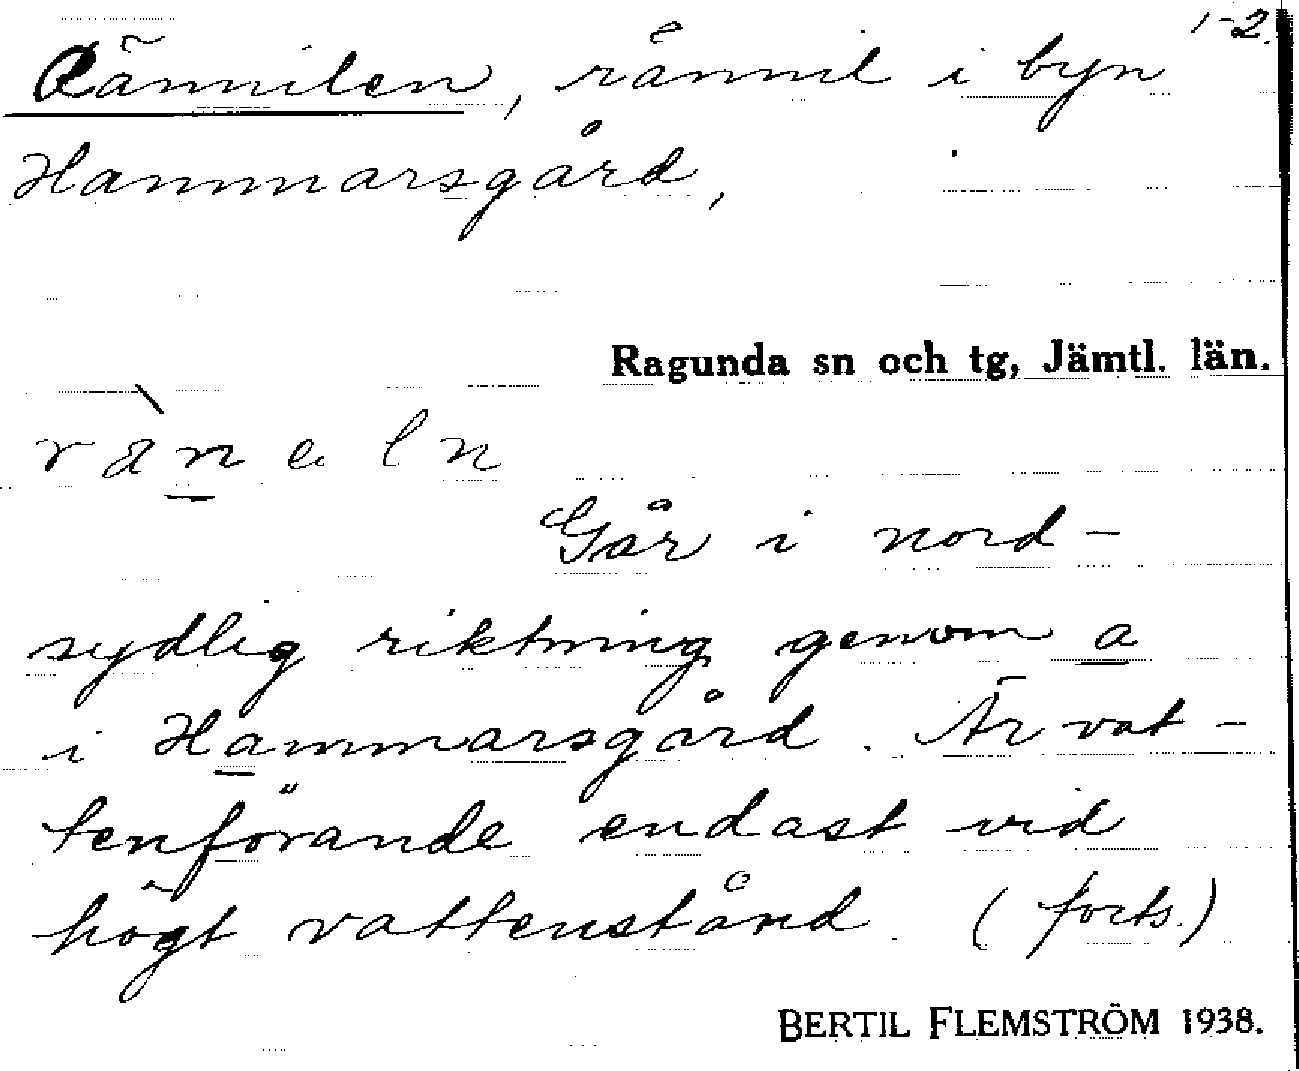 1-2.
Rännilen, rännil i byn
Hammarsgård,
Ragunda sn och tg, Jämtl. län.
Går i nord-
sydlig riktning genom a
i Hammarsgård. Är vat-
tenförande endast vid
högt vattenstånd. (forts.)
BERTIL FLEMSTRÖM 1938.